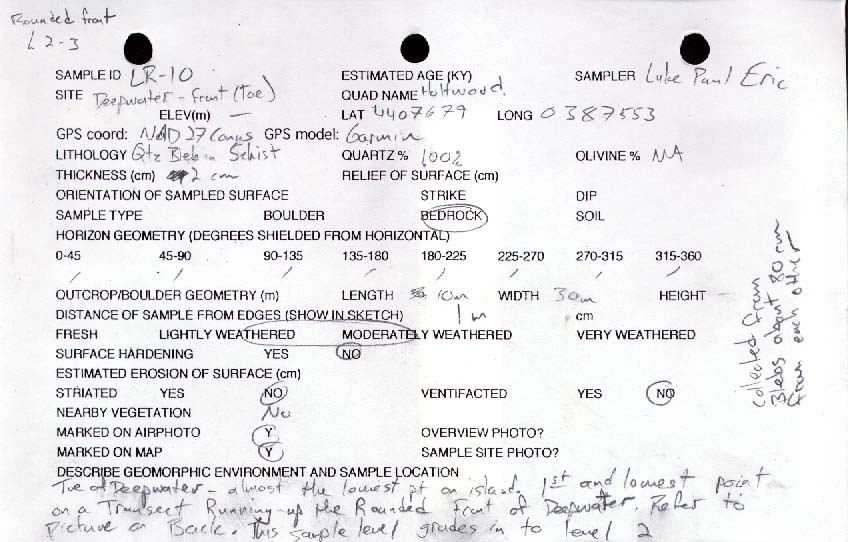 Rounded front
L 2-3
SAMPLE ID LR-10 ESTIMATED AGE (KY) SAMPLER Luke Paul Eric
SITE Deepwater - front (Toe) QUAD NAME Holtwood
ELEV(m) — LAT 4407679 LONG 0387553
GPS coord: NAD 27 Conus GPS model: Garmin
LITHOLOGY Qtz Bleb in Schist QUARTZ % 100% OLIVINE % NA
THICKNESS (cm) 2 cm RELIEF OF SURFACE (cm)
ORIENTATION OF SAMPLED SURFACE STRIKE DIP
SAMPLE TYPE BOULDER BEDROCK SOIL
HORIZON GEOMETRY (DEGREES SHIELDED FROM HORIZONTAL)
0-45 45-90 90-135 135-180 180-225 225-270 270-315 315-360
/ / / / / / / /
OUTCROP/BOULDER GEOMETRY (m) LENGTH 10m WIDTH 30m HEIGHT -
DISTANCE OF SAMPLE FROM EDGES (SHOW IN SKETCH) 1 m cm
FRESH LIGHTLY WEATHERED MODERATELY WEATHERED VERY WEATHERED
SURFACE HARDENING YES NO
ESTIMATED EROSION OF SURFACE (cm)
STRIATED YES NO VENTIFACTED YES NO
NEARBY VEGETATION No
MARKED ON AIRPHOTO Y OVERVIEW PHOTO?
MARKED ON MAP Y SAMPLE SITE PHOTO?
DESCRIBE GEOMORPHIC ENVIRONMENT AND SAMPLE LOCATION
Toe of Deepwater - almost the lowest pt on island. 1st and lowest point
on a Transect Running-up the Rounded Front of Deepwater. Refer to
Picture on Back. This sample level grades in to level 2
collected from
Blebs about 80 cm
from each other